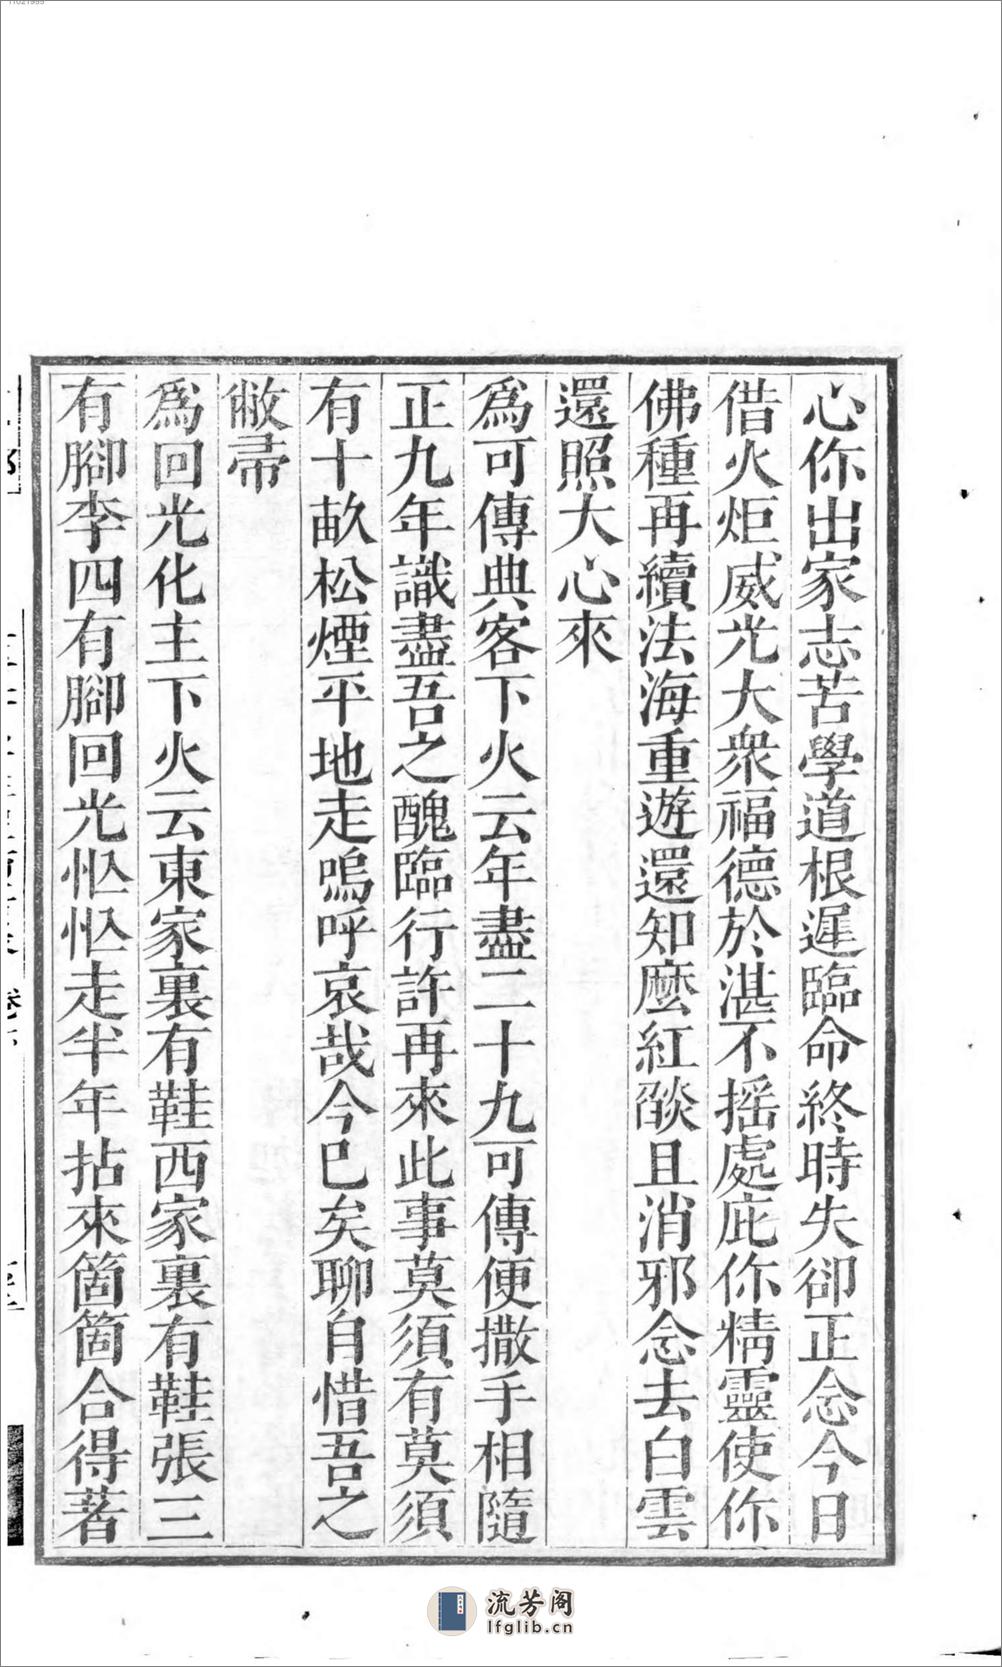 11021995
心你出家志苦學道根遲臨命終時失卻正念今日
借火炬威光大衆福德於湛不摇處庇你精靈使你
佛種再續法海重遊還知麽紅燄且消邪念去白雲
還照大心來
為可傳典客下火云年盡二十九可傳便撒手相隨
正九年識盡吾之醜臨行許再來此事莫須有莫須
有十畝松煙平地走嗚呼哀哉今已矣聊自惜吾之
敝帚
為回光化主下火云東家裏有鞋西家裏有鞋張三
有腳李四有腳回光忪忪走半年拈來箇箇合得著
流芳阁
lfglib.cn